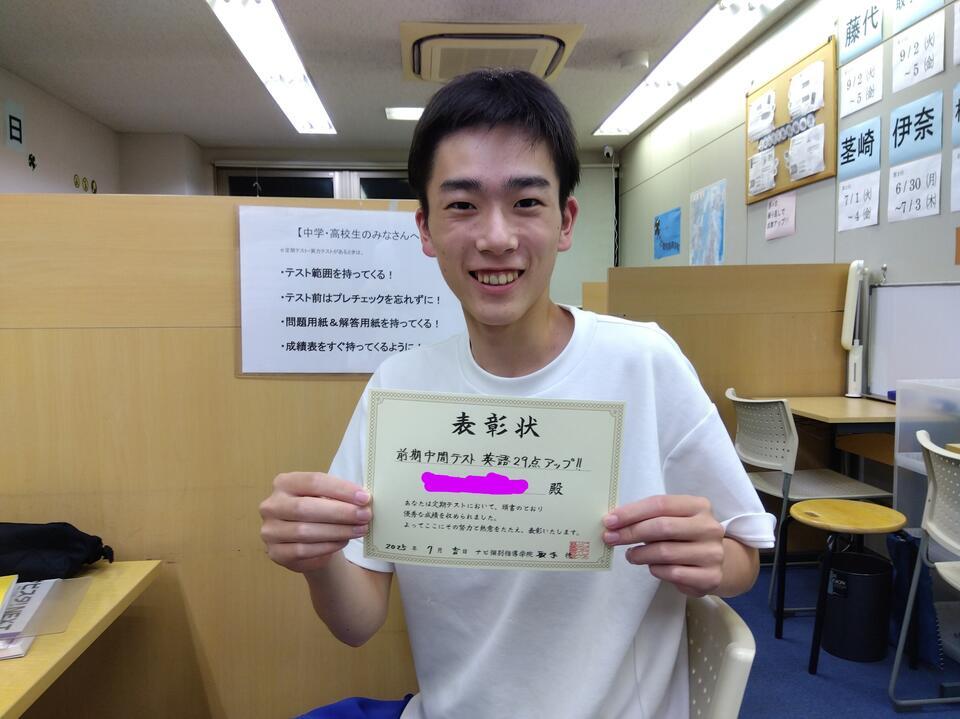 日
【中学・高校生のみなさんへ
・テスト範囲を持ってくる！
・テスト前はプレチェックを忘れずに！
・問題用紙＆解答用紙を持ってくる！
・成績表をすぐ持ってくるように！
表彰状
前期中間テスト 英語29点アップ!!
殿
あなたは定期テストにおいて、頭書のとおり
優秀な成績を収められました。
よってここにその努力と熱意をたたえ、表彰いたします。
2025年 7月 吉日 ナビ個別指導学院 取手校
藤代
9/2（火）
～5（金）
9/2（火）
～5（金）
茎崎
伊奈
7/1（火）
～4（金）
6/30（月）
～7/3（木）